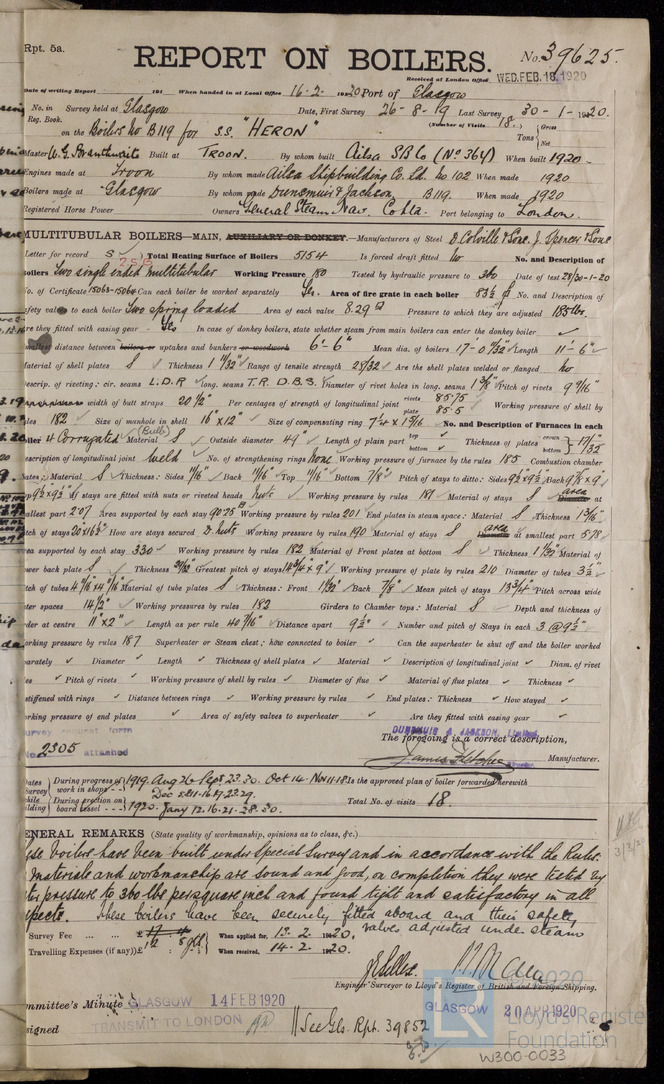 Rpt. 5a.
REPORT ON BOILERS.
No. 39625.
Received at London Office WED. FEB. 18. 1920
Date of writing Report 191 When handed in at Local Office 16.2.1920 Port of Glasgow
No. in Survey held at Glasgow Date, First Survey 26-8-19 Last Survey 30-1-1920.
Reg. Book. (Number of Visits 18.)
on the Boilers No B119 for S.S. "HERON" Tons Gross Net
Master W. G. Branthwaite Built at TROON. By whom built Ailsa S.B. Co (No 364) When built 1920
Engines made at Troon By whom made Ailsa Shipbuilding Co. Ld. No 102 When made 1920
Boilers made at Glasgow By whom made Dunsmuir & Jackson B119. When made 1920
Registered Horse Power Owners General Steam Nav. Co Ltd. Port belonging to London.
MULTITUBULAR BOILERS—MAIN, AUXILIARY OR DONKEY.—Manufacturers of Steel D. Colville & Sons. J. Spencer & Sons
Letter for record S 258 Total Heating Surface of Boilers 5154 Is forced draft fitted No No. and Description of
Boilers Two single ended multitubular Working Pressure 180 Tested by hydraulic pressure to 360 Date of test 28/30-1-20
No. of Certificate 15063-15064 Can each boiler be worked separately Yes. Area of fire grate in each boiler 83½ No. and Description of
safety valves to each boiler Two spring loaded Area of each valve 8.29 Pressure to which they are adjusted 185 lbs.
Are they fitted with easing gear Yes In case of donkey boilers, state whether steam from main boilers can enter the donkey boiler ✓
Smallest distance between boilers or uptakes and bunkers or woodwork 6'-6" Mean dia. of boilers 17'-0 1/32" Length 11'-6"
Material of shell plates S Thickness 1 11/32" Range of tensile strength 28/32 Are the shell plates welded or flanged No
Descrip. of riveting: cir. seams L.D.R long. seams T.R.D.B.S. Diameter of rivet holes in long. seams 1 3/8" Pitch of rivets 9 9/16"
width of butt straps 20½" Per centages of strength of longitudinal joint rivets 85.75 plate 85.5 Working pressure of shell by
rules 182 Size of manhole in shell 16" x 12" Size of compensating ring 7¼ x 1 5/16 No. and Description of Furnaces in each
boiler 4 Corrugated (Bulb) Material S Outside diameter 49" Length of plain part top bottom Thickness of plates crown bottom 17/32"
Description of longitudinal joint Weld No. of strengthening rings None Working pressure of furnace by the rules 185 Combustion chamber
plates: Material S Thickness: Sides 11/16" Back 11/16" Top 11/16" Bottom 7/8" Pitch of stays to ditto: Sides 9½ x 9½ Back 9 5/8 x 9"
Top 9½ x 9½ If stays are fitted with nuts or riveted heads nuts Working pressure by rules 181 Material of stays S area at
smallest part 2.07 Area supported by each stay 90.75 Working pressure by rules 201 End plates in steam space: Material S Thickness 1 3/16"
Pitch of stays 20 x 16½ How are stays secured D. nuts Working pressure by rules 190 Material of stays S area at smallest part 5.78
Area supported by each stay 330 Working pressure by rules 182 Material of Front plates at bottom S Thickness 1 1/32 Material of
Lower back plate S Thickness 31/32 Greatest pitch of stays 14¾ x 9" Working pressure of plate by rules 210 Diameter of tubes 3¼"
Pitch of tubes 4 7/16 x 4 7/16 Material of tube plates S Thickness: Front 1 1/32 Back 7/8" Mean pitch of stays 13¾" Pitch across wide
water spaces 14½" Working pressures by rules 182 Girders to Chamber tops: Material S Depth and thickness of
girder at centre 11" x 2" Length as per rule 40 9/16" Distance apart 9½ Number and pitch of Stays in each 3 @ 9½
Working pressure by rules 187 Superheater or Steam chest; how connected to boiler ✓ Can the superheater be shut off and the boiler worked
separately ✓ Diameter ✓ Length ✓ Thickness of shell plates ✓ Material ✓ Description of longitudinal joint ✓ Diam. of rivet
holes ✓ Pitch of rivets ✓ Working pressure of shell by rules ✓ Diameter of flue ✓ Material of flue plates ✓ Thickness ✓
If stiffened with rings ✓ Distance between rings ✓ Working pressure by rules ✓ End plates: Thickness ✓ How stayed ✓
Working pressure of end plates ✓ Area of safety valves to superheater ✓ Are they fitted with easing gear ✓
Survey request form
No. 2305 attached
DUNSMUIR & JACKSON, Limited.
The foregoing is a correct description,
James Fletcher Manufacturer.
Dates of Survey while building During progress of work in shops 1919. Aug 26 Sept 23.30. Oct 14. Nov 11.18. Is the approved plan of boiler forwarded herewith
Dec
During erection on board vessel 1920. Jany 12.16.21.28.30. Total No. of visits 18.
GENERAL REMARKS (State quality of workmanship, opinions as to class, &c.)
These boilers have been built under Special Survey and in accordance with the Rules.
Materials and workmanship are sound and good, on completion they were tested by
water pressure to 360 lbs per square inch and found tight and satisfactory in all
respects. These boilers have been securely fitted aboard and their safety
valves adjusted under steam
Survey Fee ... ... £ When applied for, 13.2.1920.
Travelling Expenses (if any) £ : : When received, 14.2.1920.
Engineer Surveyor to Lloyd's Register of British and Foreign Shipping.
Committee's Minute GLASGOW 14 FEB 1920
GLASGOW 20 APR 1920
Assigned TRANSMIT TO LONDON See Gls. Rpt. 39852
Lloyd's Register
Foundation
W300-0033